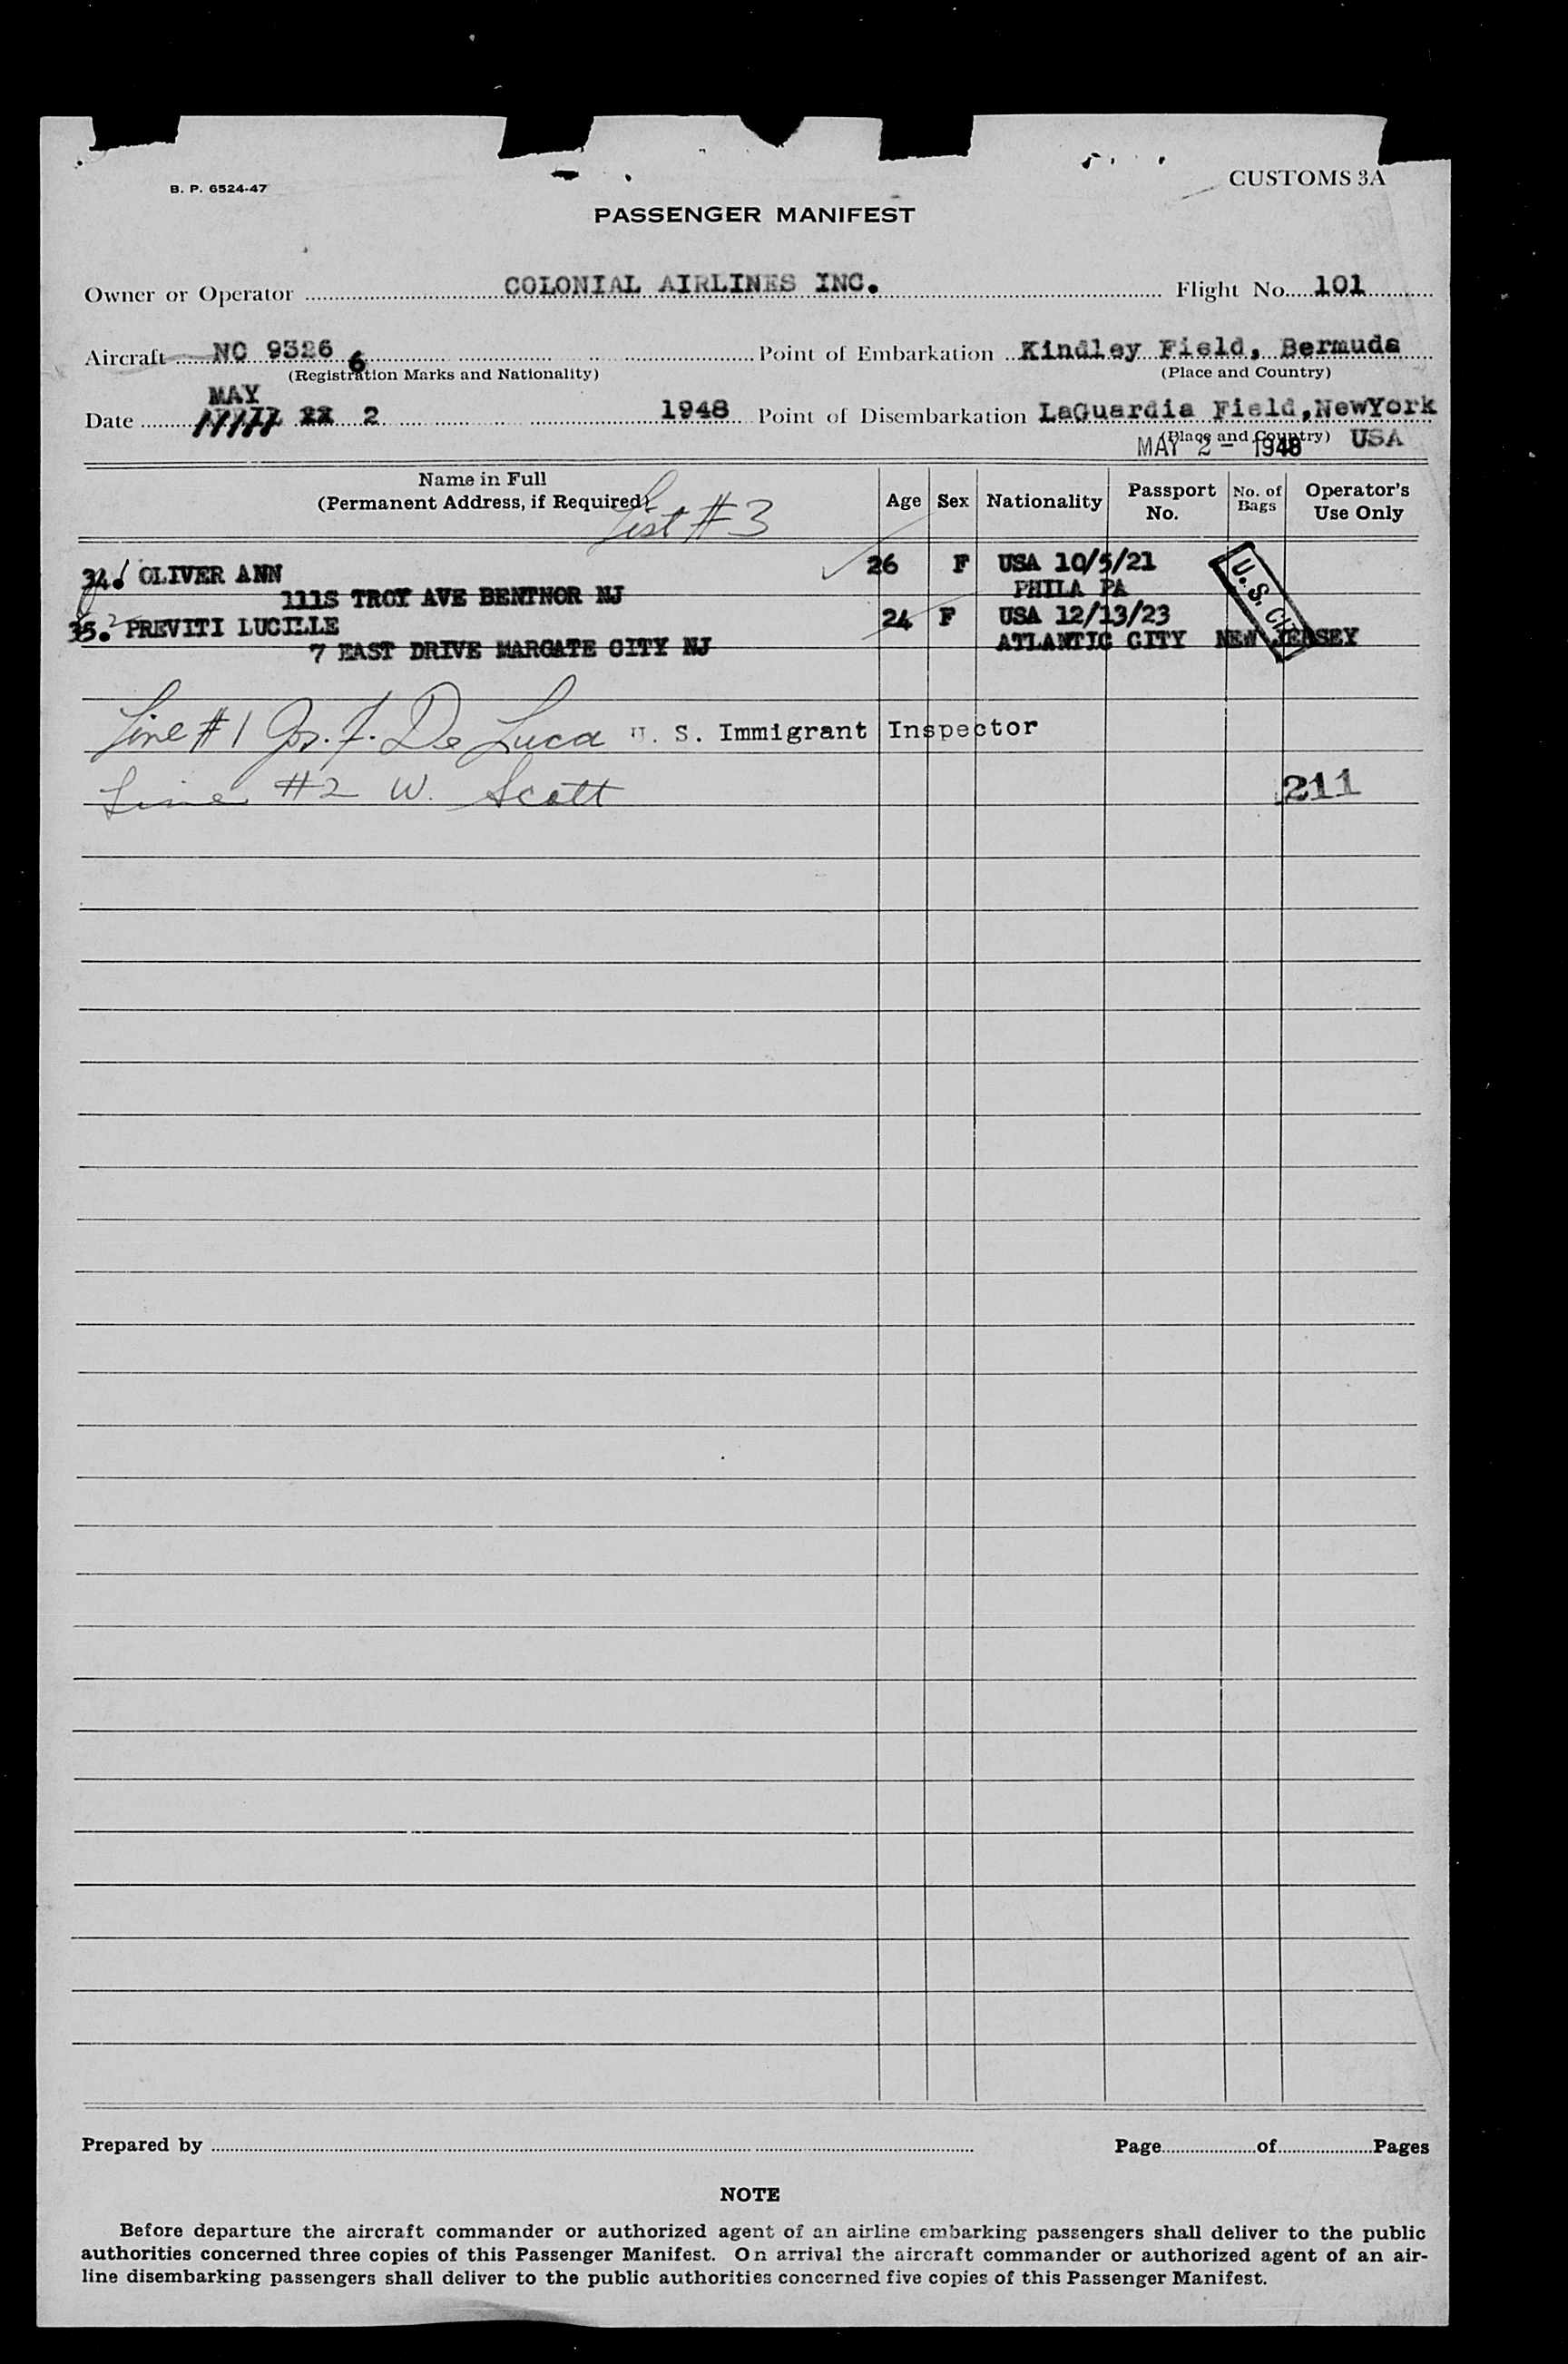 B. P. 6524-47
CUSTOMS 3A
PASSENGER MANIFEST
Owner or Operator COLONIAL AIRLINES INC. Flight No. 101
Aircraft NC 9326 6 Point of Embarkation Kindley Field, Bermuda
(Registration Marks and Nationality) (Place and Country)
MAY
Date 2 1948 Point of Disembarkation LaGuardia Field, NewYork
(Place and Country) USA
MAY 2 - 1948
Name in Full Age Sex Nationality Passport No. No. of Bags Operator's Use Only
(Permanent Address, if Required)
List #3
34. OLIVER ANN 26 F USA 10/5/21
111S TROY AVE BENTNOR NJ PHILA PA
35. 2 PREVITI LUCILLE 24 F USA 12/13/23
7 EAST DRIVE MARGATE CITY NJ ATLANTIC CITY NEW JERSEY
U. S. CIT
Line #1 Jos. F. De Luca U. S. Immigrant Inspector
Line #2 W. Scott
211
Prepared by Page of Pages
NOTE
Before departure the aircraft commander or authorized agent of an airline embarking passengers shall deliver to the public
authorities concerned three copies of this Passenger Manifest. On arrival the aircraft commander or authorized agent of an air-
line disembarking passengers shall deliver to the public authorities concerned five copies of this Passenger Manifest.